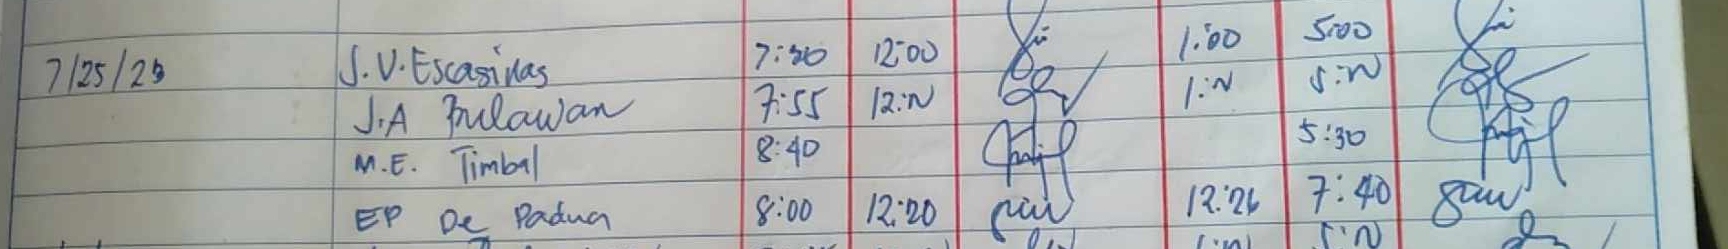 7/25/23 J.V. Escasinas 7:30 12:00 1:00 5:00
J.A Bulawan 7:55 12:N 1:N 5:N
M.E. Timbal 8:40 5:30
EP De Padua 8:00 12:20 12:26 7:40
1:N 5:N